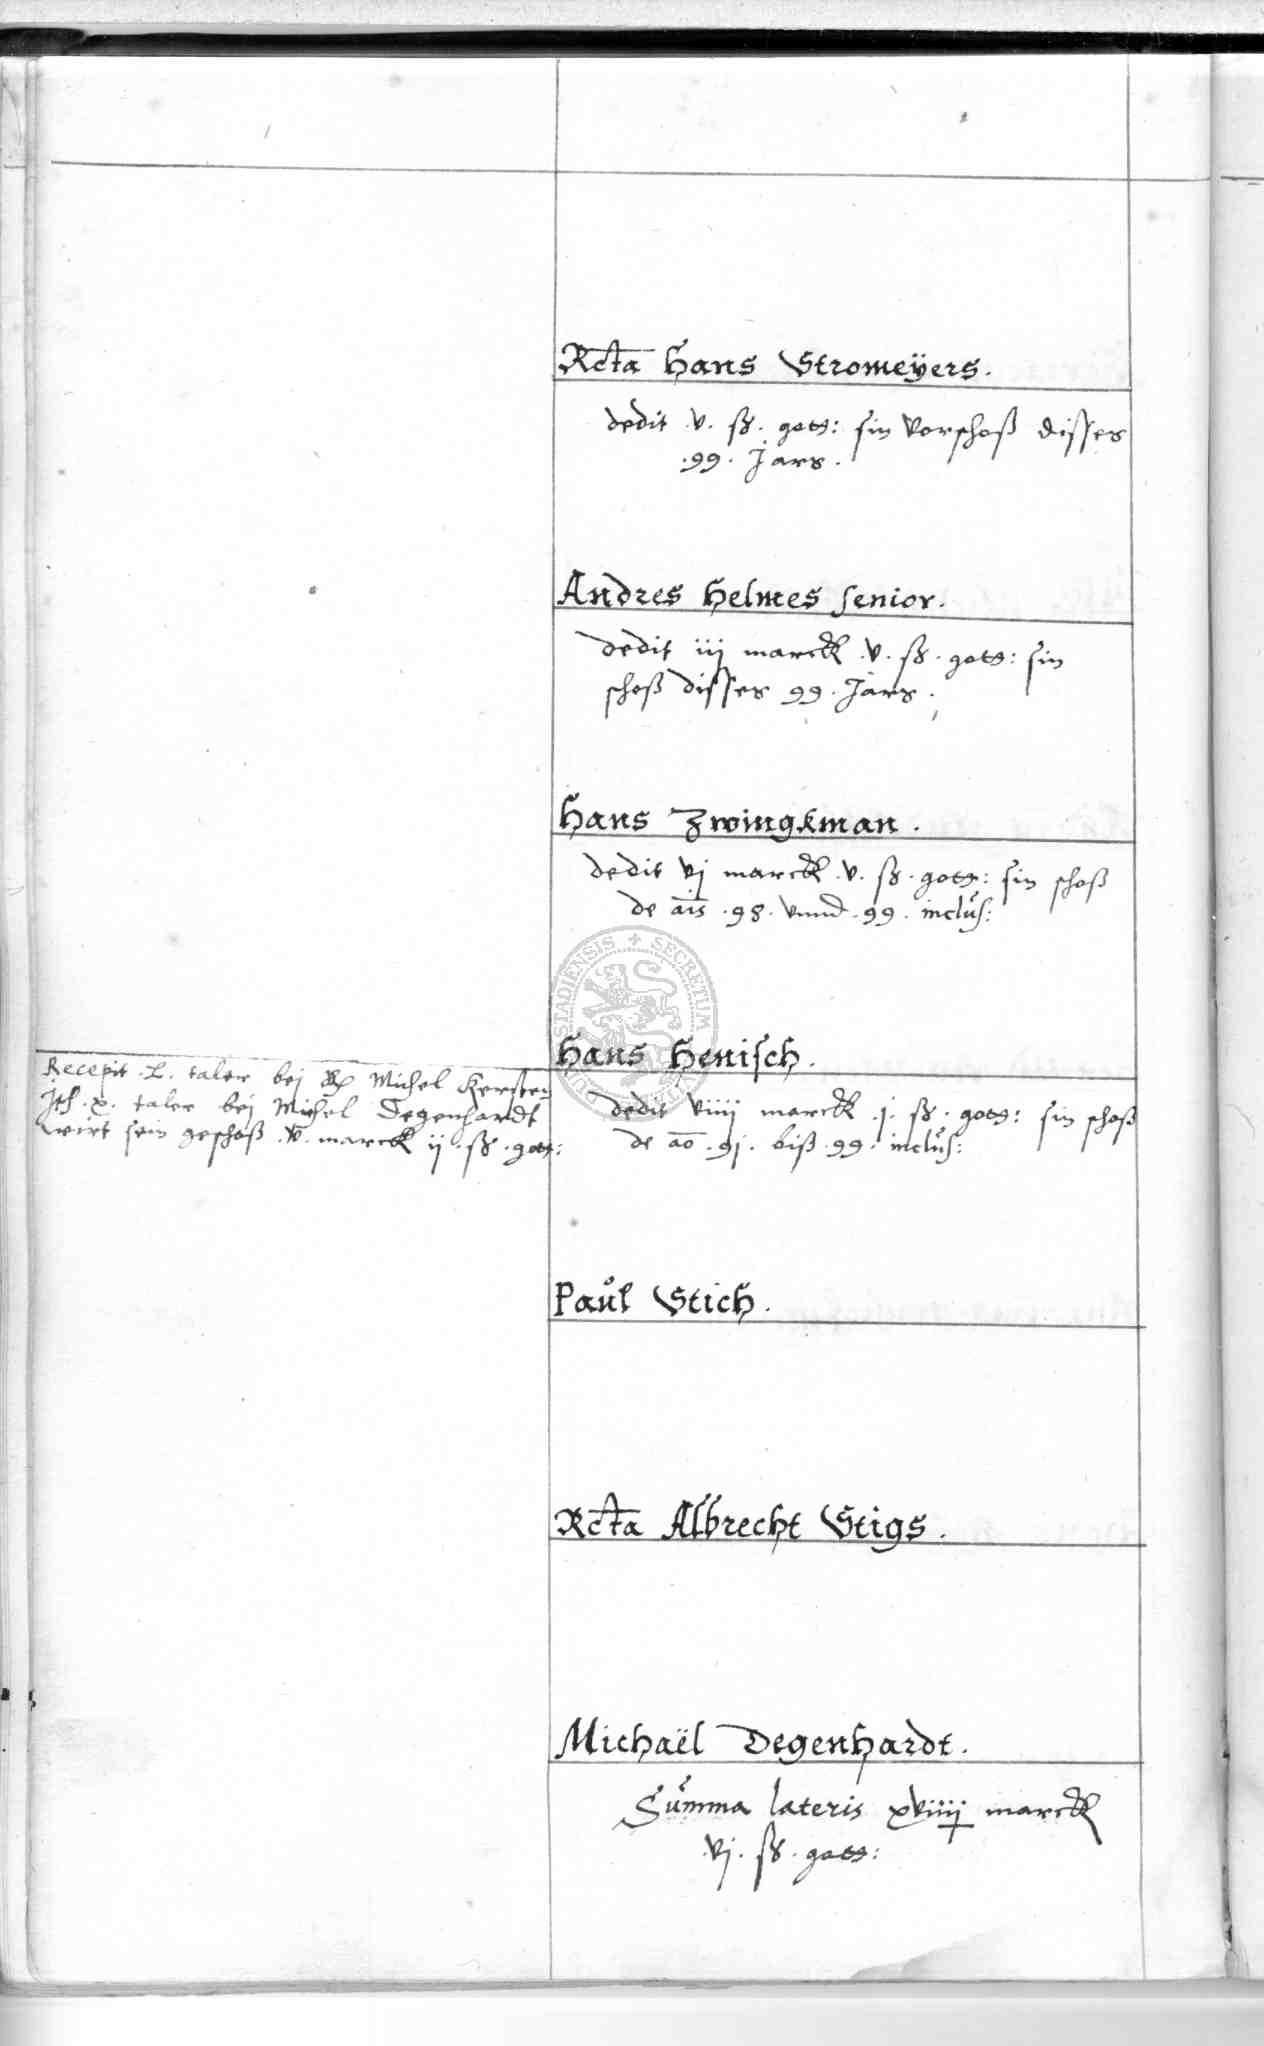 Rcta Hans Stromeÿers.
dedit .v. ß. gots: sin vorschoß disses
.99. Jars.
Andres Helmes senior.
dedit iij marck .v. ß. gots: sin
schoß disses 99. Jars.
Hans Zwingkman.
dedit vj marck .v. ß. gots: sin schoß
de ais .98. vnnd .99. inclus:
Hans Henisch.
Recepit .L. taler bei Michel Kersten
Jt .x. taler bei Michel Degenhardt
wirt sein geschoß .v. marck ij .ß. gots:
dedit viiij marck .j. ß. gots: sin schoß
de ao .91. biß .99. inclus:
Paul Stich.
Rcta Albrecht Stigs.
Michaël Degenhardt.
Summa lateris xviiij marck
.vj. ß. gots:
SECRETUM
STADIENSIS